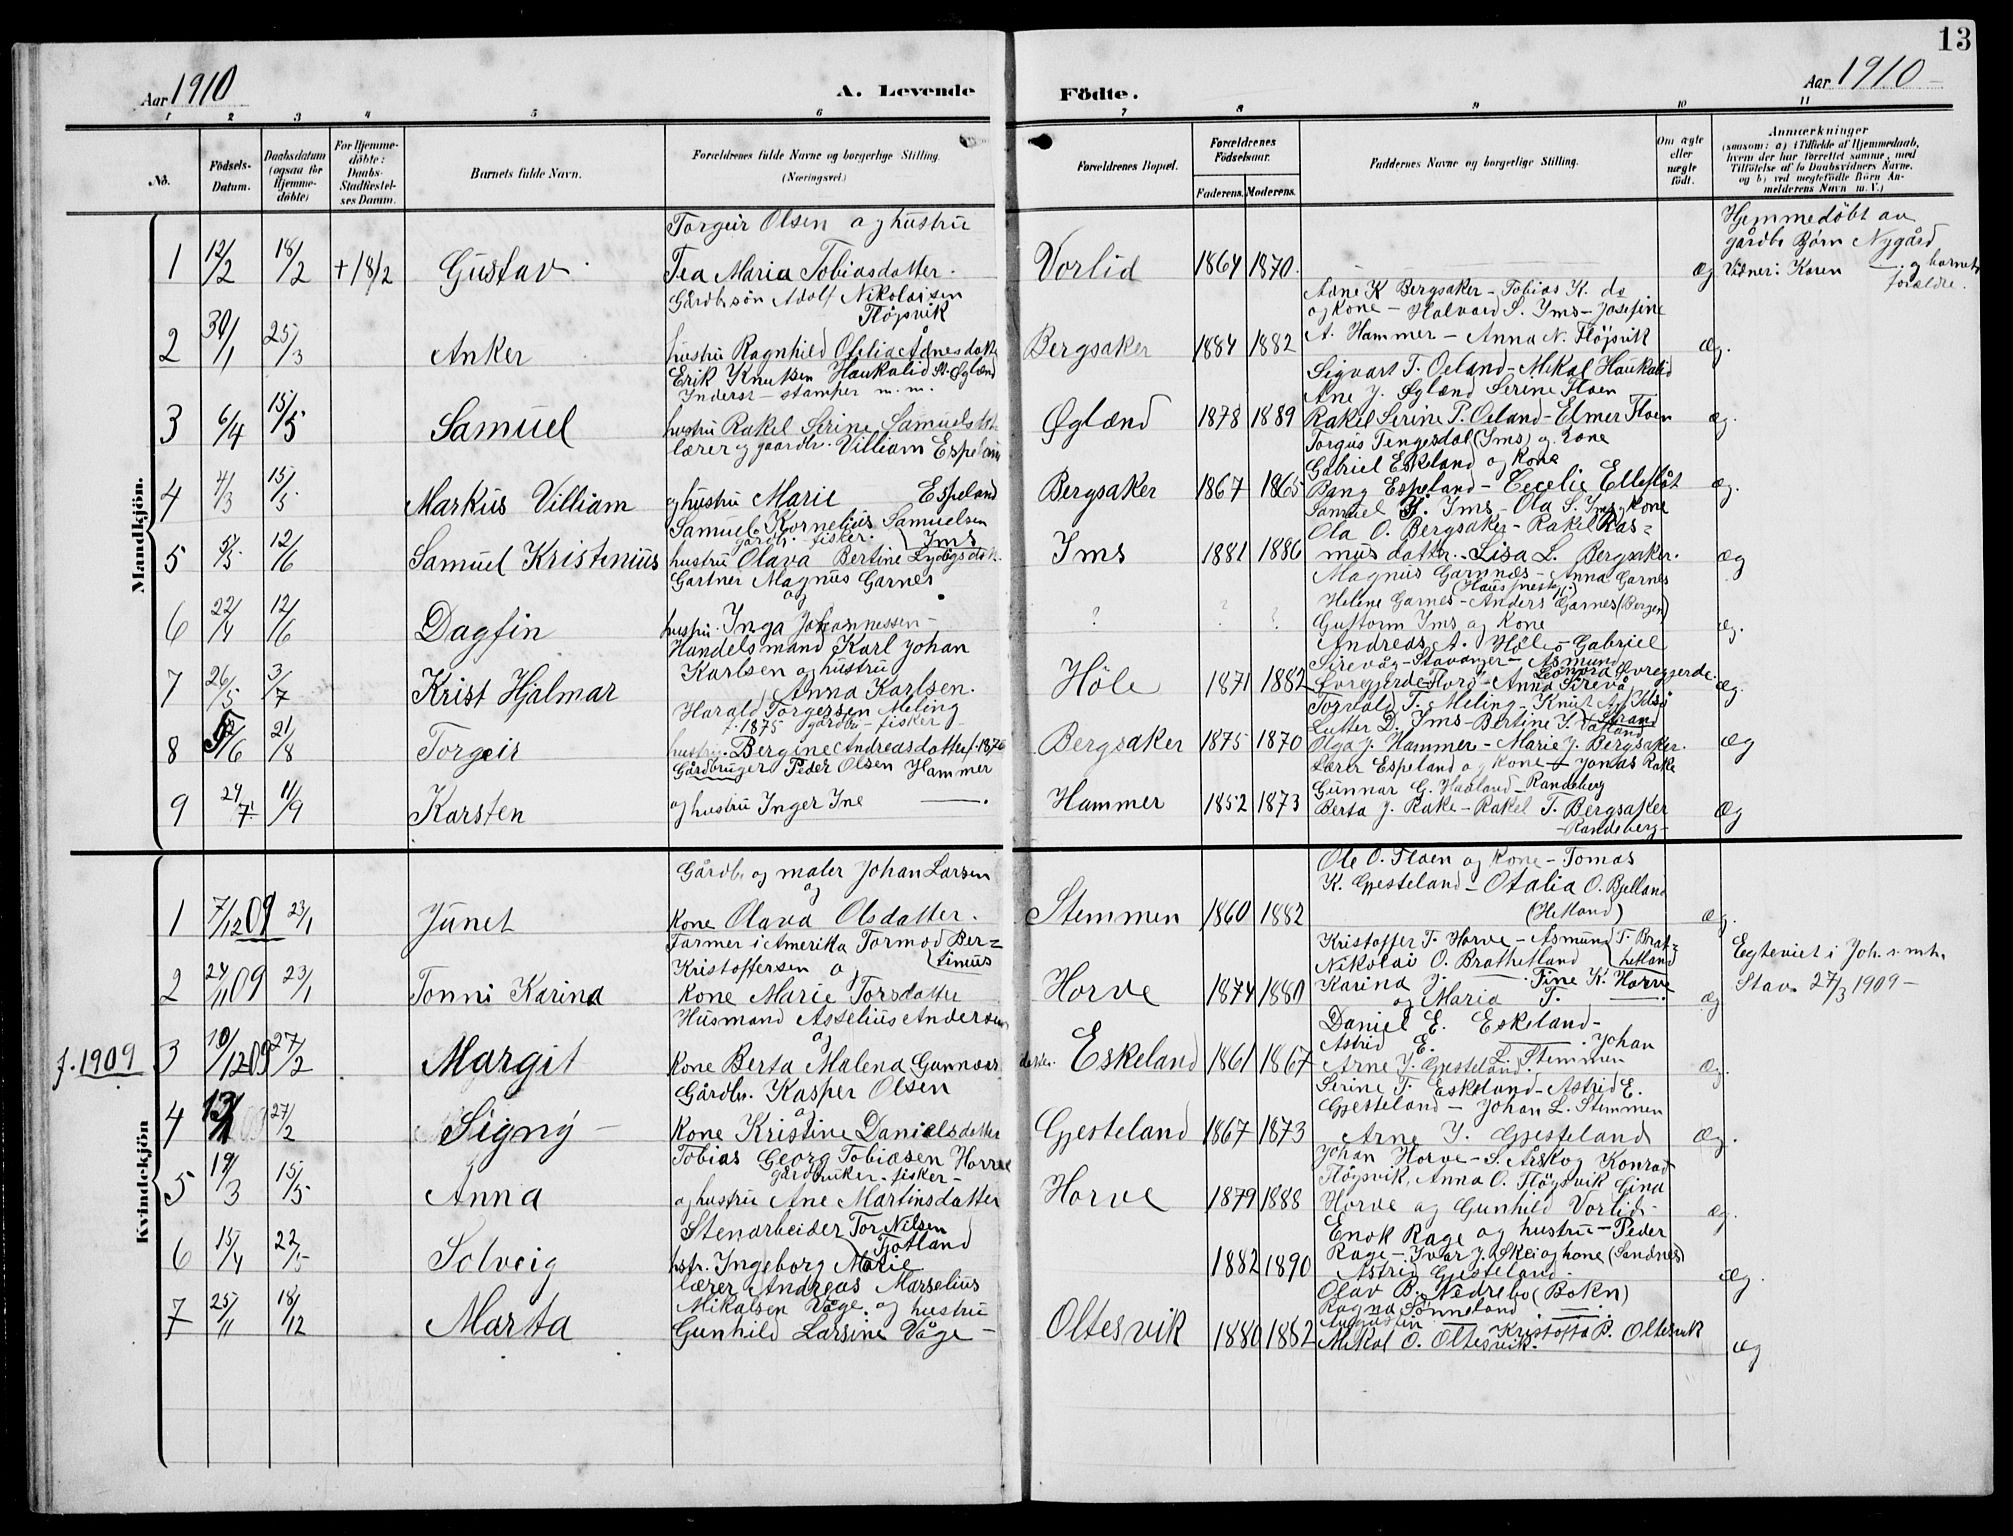 13
Aar 1910
A. Levende Födte.
Aar 1910
1 2 3 4 5 6 7 8 9 10 11
No.
Födsels-Datum.
Daabsdatum (ogsaa for Hjemme-döbte)
For Hjemme-döbte: Daabs-Stadfæstel-ses Datum.
Barnets fulde Navn.
Forældrenes fulde Navne og borgerlige Stilling. (Næringsvei.)
Forældrenes Bopæl.
Forældrenes Födselsaar.
Faderens. Moderens.
Faddernes Navne og borgerlige Stilling.
Om ægte eller uægte födt.
Anmærkninger
(saasom: a) i Tilfælde af Hjemmedaab,
hvem der har forrettet samme, med
Tilföielse af to Daabsvidners Navne.
og b) ved uægtefödte Börn An-
melderens Navn m. V.)
Mandkjön.
Torgeir Olsen og hustru
1 12/2 18/2 + 18/2 Gustav Tea Maria Tobiasdatter. Vorlid 1864 1870. æg
Hjemmedöbt av
gårdbr Björn Nygård
Vidner: Karen — og barnets
forældre.
Gårdbsön Adolf Nikolaisen
Flöysvik
2 30/1 25/3 Anker hustru Ragnhild Otilia Adnesdatter Bergsaker 1884 1882 æg.
Adne K Bergsaker – Tobias K. do
og kone – Halvard S. Ims – Josefine
A. Hammer – Anna N. Flöysvik
Erik Knutsen Haukalid St. Öglænd
Inderst – stamper m. m.
3 6/4 15/5 Samuel hustru Rakel Serine Samuelsdtr Öglænd 1878 1889 æg.
Sigvart T. Oeland – Mikal Haukalid
Ane J. Öglænd Serine Floen
Rakel Serine P. Oeland – Elmer Floen
lærer og gaardbr. Villiam Espeland
4 4/3 15/5 Markus Villiam og hustru Marie Espeland Bergsaker 1867 1865 æg.
Torgus Tengesdal (Ims) og kone
Gabriel Eskeland og kone
Bang Espeland – Cecelie Elleflåt
Samuel Kornelius Samuelsen
gårdbr. fisker. Ims
5 5/5 12/6 Samuel Kristenius hustru Olava Bertine Lydigsdtr. Ims 1881 1886 æg
Samuel K. Ims – Ola S. Ims og kone
Ola O. Bergsaker – Rakel Ras=
musdatter. – Lisa L. Bergsaker.
Gartner Magnus Garnes
og
6 22/4 12/6 Dagfin hustru. Inga Johannessen – ? ? ? æg.
Magnus Garnæs – Anna Garnes
Helene Garnes – Anders Garnes (Bergen)
Guttorm Ims og kone
Handelsmand Karl Johan
Karlsen og hustru
7 26/5 3/7 Krist Hjalmar Anna Karlsen. Höle 1871 1882 æg.
Andreas A. Höle – Gabriel
Sirevåg – Stavanger – Asmund
Harald Torgersen Meling
f. 1875 gårdbr – fisker
8 21/8 Torgeir hustru. Bergine Andreasdatter f. 1870 Bergsaker 1875 1870 æg
Torvald T. Meling – Knut
Lutter D. Ims – Bertine
Olga J. Hammer – Marie J. Bergsaker.
Gårdbruger Peder Olsen Hammer
9 24/7 11/9 Karsten og hustru Inger Ine — . Hammer 1852 1873 æg
Lærer Espeland og kone Jonas Rake
Gunnar G. Haaland – Randeberg
Berta J. Rake – Rakel T. Bergsaker
– Randeberg –
Kvindekjön
Gårdbr og maler Johan Larsen
og
1 7/12 09 23/1 Junet kone Olava Olsdatter. Stemmen 1860 1882 æg.
Ole O. Floen og kone – Tomas
K. Gjesteland – Otalia O. Bjelland
(Hetland)
Farmer i Amerika Tormod Ber=
timus
Kristoffersen og
2 24/11 09 23/1 Tonni Karina kone Marie Torsdatter Horve 1874 1880 æg
Kristoffer T. Horve – Asmund T. Brat=
hetland
Nikolai O. Brathetland
Karina J. — Tine K. Horve
og Maria T. — .
Egteviet i Joh. s. mh.
Stav. 27/3 1909 –
Husmand Asselius Andersen
og
f. 1909 3 10/12 09 27/2 Margit kone Berta Malena Gunnars datter. Eskeland 1861 1867 æg.
Daniel E. Eskeland –
Astrid E. — . Johan
Arne J. Gjesteland. L. Stemmen
Gårdbr. Kasper Olsen
og
4 27/2 Signy kone Kristine Danielsdatter Gjesteland 1867 1873 æg.
Serine T. Eskeland – Astrid E.
Gjesteland – Johan L. Stemmen
Arne J. Gjesteland
Tobias Georg Tobiasen Horve
gårdbruker – fisker –
5 19/3 15/5 Anna og hustru Ane Martinsdatter Horve 1879 1888 æg.
Johan Horve – S. Årskog Konrad
Flöysvik, Anna O. Flöysvik Gina
Horve og Gunhild Vorlid –
Stenarbeider Tor Nilsen
Tjotland
6 15/4 22/5 Solveig hstr. Ingeborg Marie 1882 1890 æg.
Enok Rage og hustru – Peder
Rage – Ivar J. Skei og kone (Sandnes)
Astrid Gjesteland –
lærer Andreas Marselius
Mikalsen Våge. og hustru
7 25/11 18/12 Marta Gunhild Larsine Våge – Oltesvik 1880 1882 æg
Olav B. Nedrebo (Bokn)
Ragna Sönneland — .
Mikal O. Oltesvik. Kristoffa P. Oltesvik